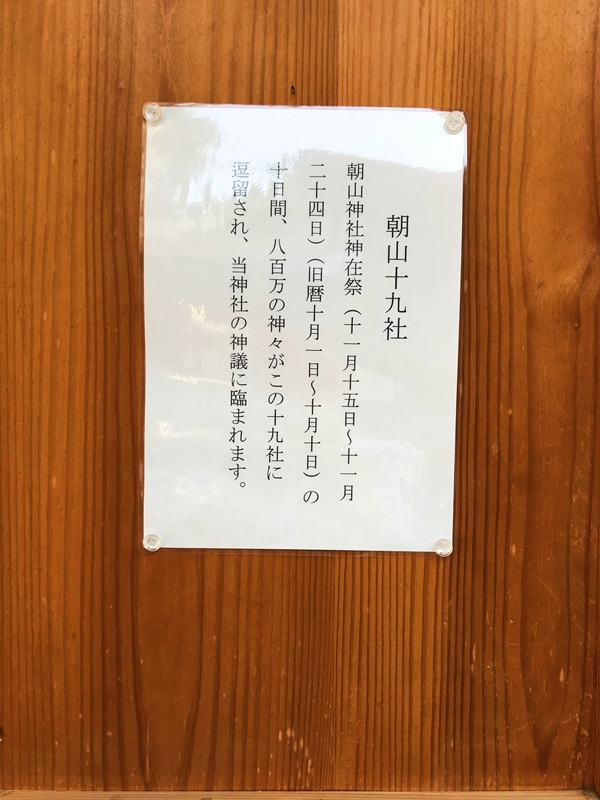 朝山十九社
朝山神社神在祭（十一月十五日～十一月
二十四日）（旧暦十月一日～十月十日）の
十日間、八百万の神々がこの十九社に
逗留され、当神社の神議に臨まれます。